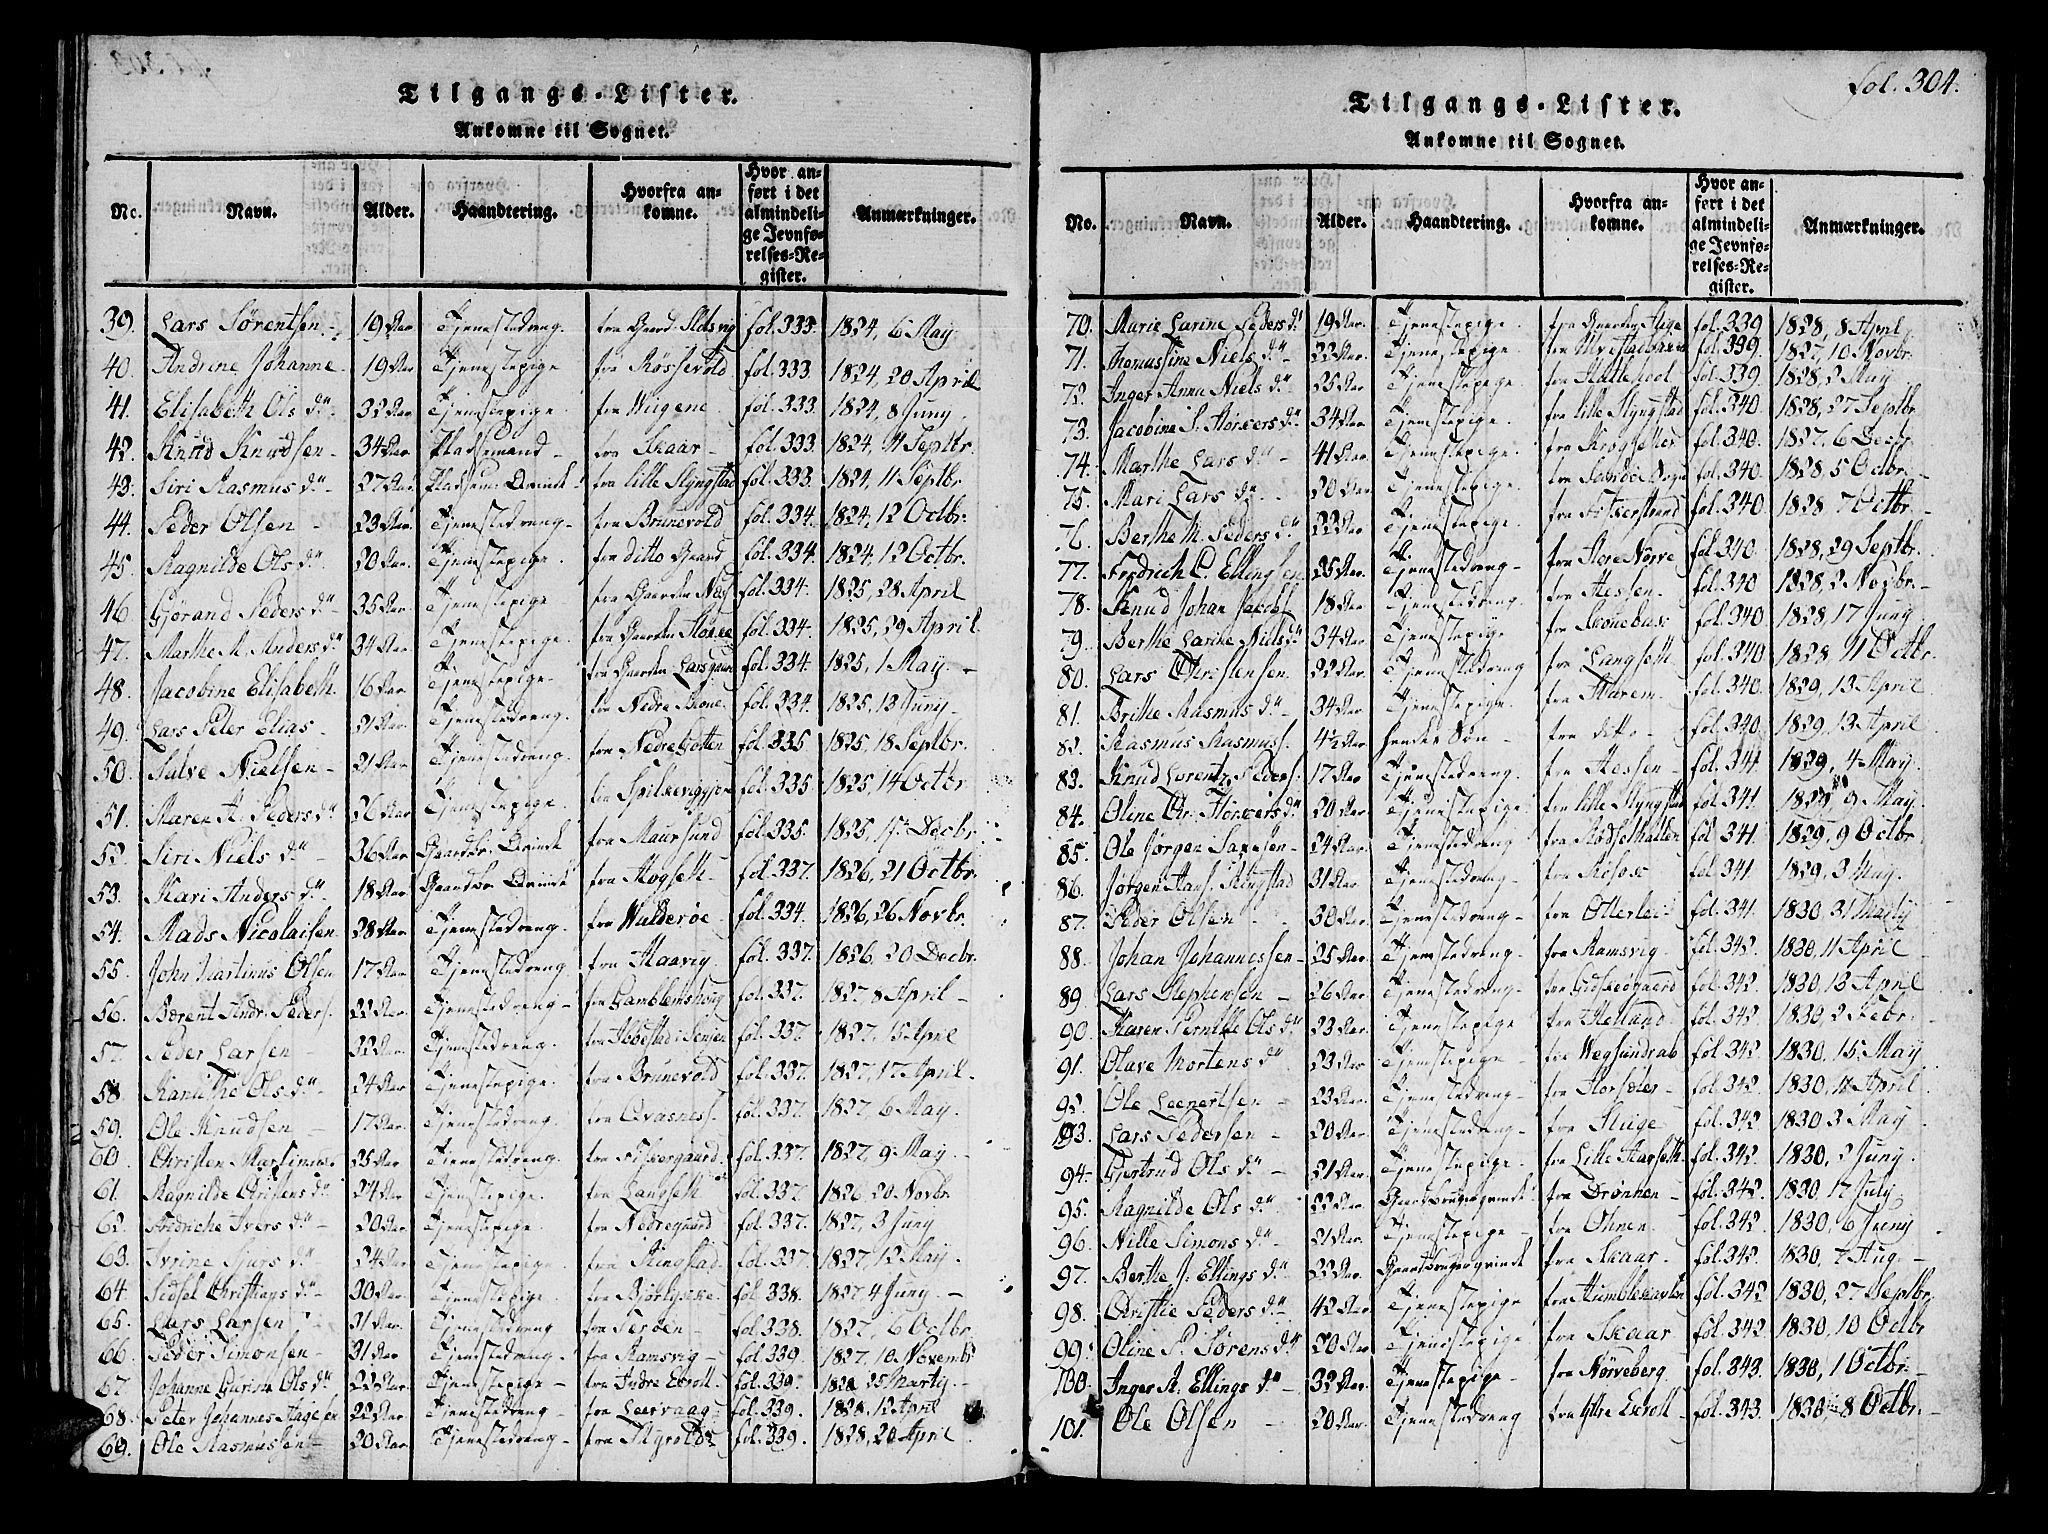 Tilgangs-Lister.
Ankomne til Sognet.
No. Navn. Alder. Haandtering. Hvorfra ankomne. Hvor anført i det almindelige Jevnførelses-Register. Anmærkninger.
39. Lars Sørentsen 19 Aar Tjenestedreng fra Gaard fol. 333. 1824, 6 May
40. Andrine Johanne 19 Aar Tjenestepige fra Røssevold fol. 333. 1824, 20 April
41. Elisabeth Ols dr 32 Aar Tjenestepige fra Wiigene fol. 333. 1824, 8 Juny
42. Knud Knudsen 34 Aar Pladsemand fra Skaar fol. 333. 1824, 11 Septbr.
43. Siri Rasmus dr 27 Aar Pladsem. Qvinde fra lille Slyngstad fol. 333. 1824, 11 Septbr
44. Peder Olsen 23 Aar Tjenestedreng fra Brunevold fol. 334. 1824, 12 Octbr.
45. Ragnilde Ols dr 20 Aar Tjenestepige fra ditto Gaard fol. 334. 1824, 12 Octbr.
46. Gjørand Peders dr 35 Aar Tjenestepige fra Gaarden fol. 334. 1825, 28 April
47. Marthe M. Anders dr 34 Aar Tjenestepige fra Gaarden fol. 334. 1825, 29 April
48. Jacobine Elisabeth 16 Aar Tjenestepige fra Gaarden fol. 334. 1825, 1 May
49. Lars Peter Elias 21 Aar Tjenestedreng fra Nedre fol. 334. 1825, 13 Juny
50. Salve Nielsen 21 Aar Tjenestedreng fra fol. 335 1825, 18 Septbr.
51. Maren A. Peders dr 26 Aar Tjenestepige fra fol. 335 1825, 14 Octbr
52. Siri Niels dr 36 Aar Gaardbr. Qvinde fra Maursund fol. 335. 1825, 17 Decbr.
53. Kari Anders dr 18 Aar fra Hogseth fol. 337. 1826, 21 Octbr.
54. Mads Nicolaisen 28 Aar Tjenestedreng fra Walderøe fol. 334. 1826, 26 Novbr.
55. John Martinus Olsen 17 Aar Tjenestedreng fra Haavig fol. 337. 1826, 20 Decbr.
56. Bærent Andr. Peders. 22 Aar Tjenestedreng fra Gamblemshoug fol. 337. 1827, 8 April
57. Peder Larsen 32 Aar Tjenestedreng fra Ibbestad i Senjen fol. 337. 1827, 15 April
58. Ols dr 24 Aar Tjenestepige fra Brunevold fol. 337. 1827, 17 April
59. Ole Knudsen 17 Aar Tjenestedreng fra Qvasnes fol. 337. 1827, 6 May
60. Christen Martinus 25 Aar Tjenestedreng fra Fiskergaard fol. 337. 1827, 9 May
61. Ragnilde Christens dr 24 Aar Tjenestepige fra Langseth fol. 337. 1826, 20 Novbr
62. Fredricke Ivers dr 20 Aar Tjenestepige fra Nedregaard fol. 337. 1827, 3 Juny
63. Ivrine Sjurs dr 24 Aar Tjenestepige fra Ringstad fol. 337. 1827, 12 May
64. Sidsel dr 30 Aar Tjenestepige fra Bjørlykke fol. 338. 1827, 4 Juny
65. Lars Larsen 21 Aar Tjenestedreng fra fol. 338. 1827, 6 Octbr
66. Peder Simonsen 21 Aar Tjenestedreng fra Ramsvig fol. 339. 1827, 10 Novembr
67. Johanne Gurine Ols dr 22 Aar Tjenestepige fra Indre Exroll fol. 339. 1828, 25 Marty
68. Peter Johannes 22 Aar Tjenestedreng fra Leervaag fol. 339. 1828, 12 April
69. Ole Rasmussen 20 Aar Tjenestedreng fra fol. 339. 1828, 20 April
fol. 304.
Tilgangs-Lister.
Ankomne til Sognet.
No. Navn. Alder. Haandtering. Hvorfra ankomne. Hvor anført i det almindelige Jevnførelses-Register. Anmærkninger.
70. Marie Larine Peders dr 19 Aar Tjenestepige fra Gaarden fol. 339 1828, 8 April
71. Thomassine Niels dr 22 Aar Tjenestepige fra fol. 339 1827, 10 Novbr.
72. Inger Anna Niels dr 25 Aar Tjenestepige fra Hatlehool fol. 339 1828, 2 May
73. Jacobine S. dr 34 Aar Tjenestepige fra lille Slyngstad fol. 340. 1828, 27 Septbr.
74. Marthe Lars dr 41 Aar Tjenestepige fra fol. 340. 1827, 6 Decbr
75. Mari Lars dr 20 Aar Tjenestepige fra fol. 340. 1828, 5 Octbr.
76. Berthe M. Peders dr 22 Aar Tjenestepige fra Fiskerstrand fol. 340. 1828 7 Octbr.
77. Fredrich C. Ellingsen 25 Aar Tjenestedreng fra Store Nørve fol. 340 1828, 29 Septbr.
78. Knud Johan Jacobs. 18 Aar Tjenestedreng fra Hessen fol. 340 1828, 2 Novbr.
79. Berthe Larine Niels dr 34 Aar Tjenestepige fra fol. 340. 1828, 17 Juny
80. Lars Christensen 22 Aar Tjenestedreng fra Langseth fol. 340 1828 11 Octbr.
81. Brithe Rasmus dr 34 Aar Tjenestepige fra Harem fol. 340. 1829, 13 April
82. Rasmus Rasmuss. 4½ Aar hendes Søn fra ditto fol. 340. 1829, 13 April
83. Knud Lorentz Peders. 17 Aar Tjenestedreng fra Hessen fol. 341 1829, 4 May
84. Oline Chr. dr 20 Aar Tjenestepige fra lille Slyngstad fol. 341 1828 9 May
85. Ole Jørgen 24 Aar Tjenestedreng fra fol. 341. 1829, 9 Octbr.
86. Jørgen Hans. Ringstad 31 Aar Tjenestedreng fra fol. 341 1829, 3 May
87. Peder Olsen 30 Aar Tjenestedreng fra Otterlei fol. 341. 1830, 31 Marty
88. Johan Johannessen 25 Aar Tjenestedreng fra Ramsvig fol. 342. 1830, 11 April
89. Lars Stephensen 26 Aar Tjenestedreng fra Gidskeøgaard fol. 342. 1830, 13 April
90. Maren Pernille Ols dr 23 Aar Tjenestepige fra Helland fol. 342. 1830, 2 Febr.
91. Olave Mortens dr 23 Aar Tjenestepige fra Wegsundrab fol. 342. 1830, 15 May
92. Ole Leenertsen 23 Aar Tjenestedreng fra fol. 342 1830, 11 April
93. Lars Pedersen 20 Aar Tjenestedreng fra Huge fol. 342. 1830 3 May
94. Giertrud Ols dr 21 Aar Tjenestepige fra Lille Aarseth fol. 342. 1830, 2 Juny
95. Ragnilde Ols dr 22 Aar Gaardbrugerqvinde fra Drønnen fol. 342. 1830, 17 July
96. Nille Simons dr 21 Aar Tjenestepige fra Ohnen fol. 342. 1830, 6 Juny
97. Berthe J. Ellings dr 22 Aar Gaardbrugerqvinde fra Skaar fol. 342. 1830, 7 Aug.
98. Christie Peders dr 42 Aar Tjenestepige fra fol. 342 1830, 27 Septbr.
99. Oline P. Sørens dr 20 Aar Tjenestepige fra Skaar fol. 342. 1830, 10 Octbr
100. Inger A. Ellings dr 32 Aar Tjenestepige fra Nørveberg fol. 343. 1830, 1 Octbr.
101. Ole Olsen 20 Aar Tjenestedreng fra Ythre Exroll fol. 343. 1830, 8 Octbr.